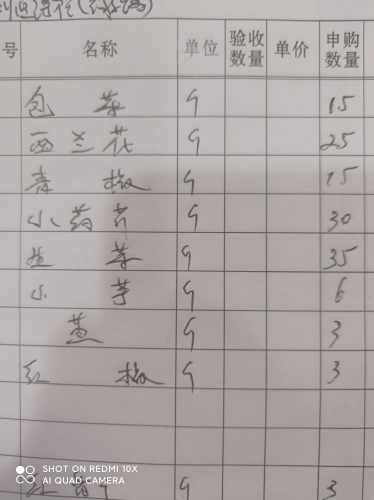 号 名称 单位 验收数量 单价 申购数量
包菜 斤 15
西兰花 斤 25
青椒 斤 15
小药芹 斤 30
生菜 斤 35
小芋 斤 6
斤 3
红椒 斤 3
斤 3
SHOT ON REDMI 10X
AI QUAD CAMERA